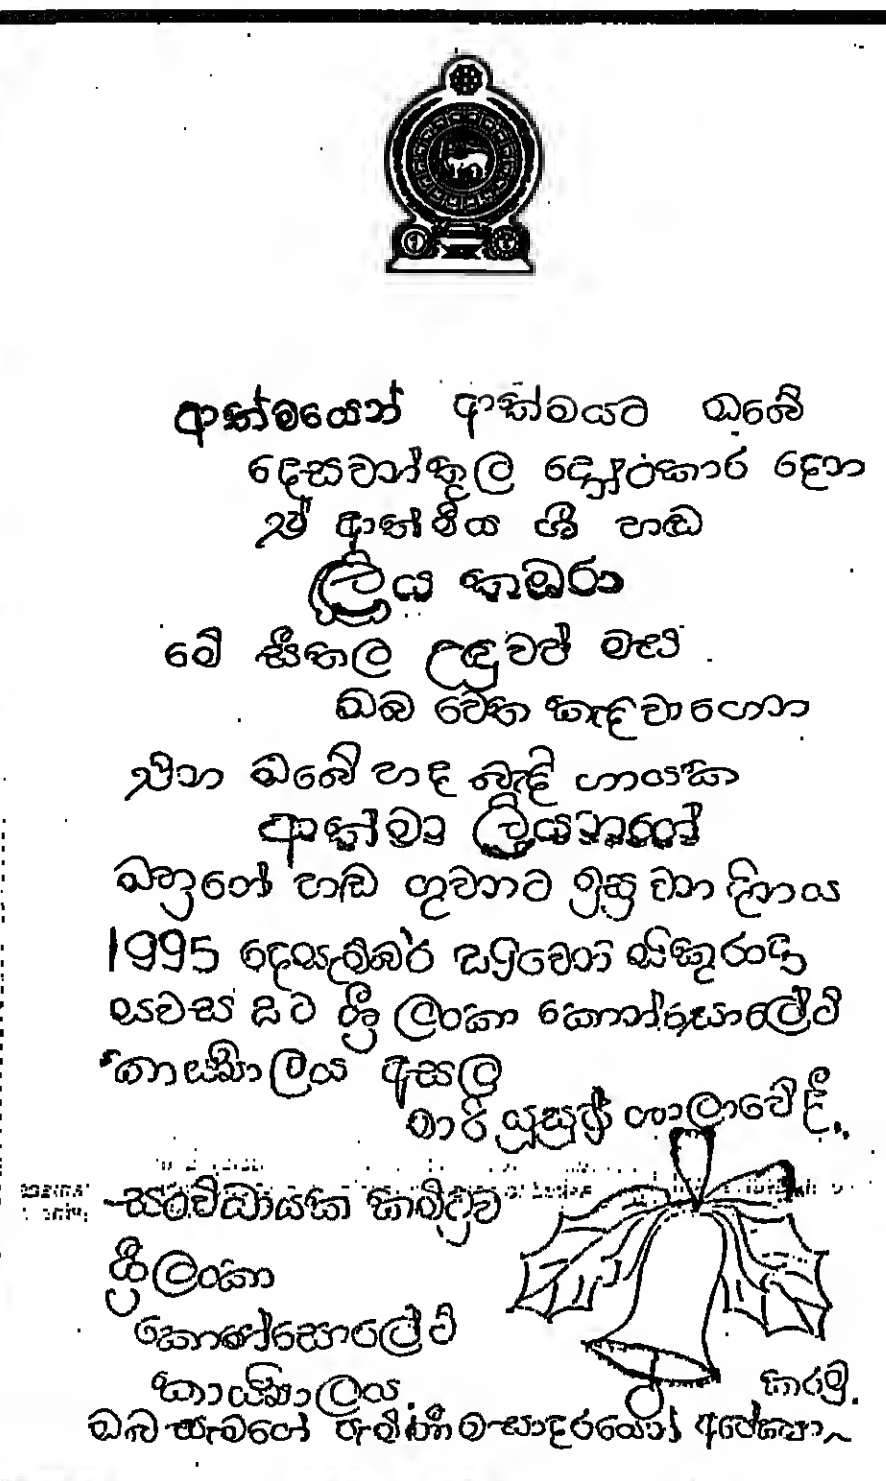 ආත්මයෙන් ආත්මයට ඔබේ
දෙසවන්තුල දෝංකාර දෙන
ඒ ආත්මීය ගී හඬ
ලිය කඹුරා
මේ සීතල උඳුවප් මස
ඔබ වෙත කැඳවාගෙන
එන ඔබේ හද බැඳි ගායක
ආත්මා ලියනගේ
ඔහුගේ හඬ ගුවනට මුසු වන දිනය
1995 දෙසැම්බර් වෙනි සිකුරාදා
සවස ට ශ්‍රී ලංකා කොන්සුලේට්
කාර්යාලය අසල
මාරි යූසුප් ශාලාවේ දී..
සංවිධායක කමිටුව
ශ්‍රී ලංකා
කොන්සොලේට්
කාර්යාලය.
ඔබ සැමගේ පැමිණීම සාදරයෙන් අපේක්ෂා~
කරමු.